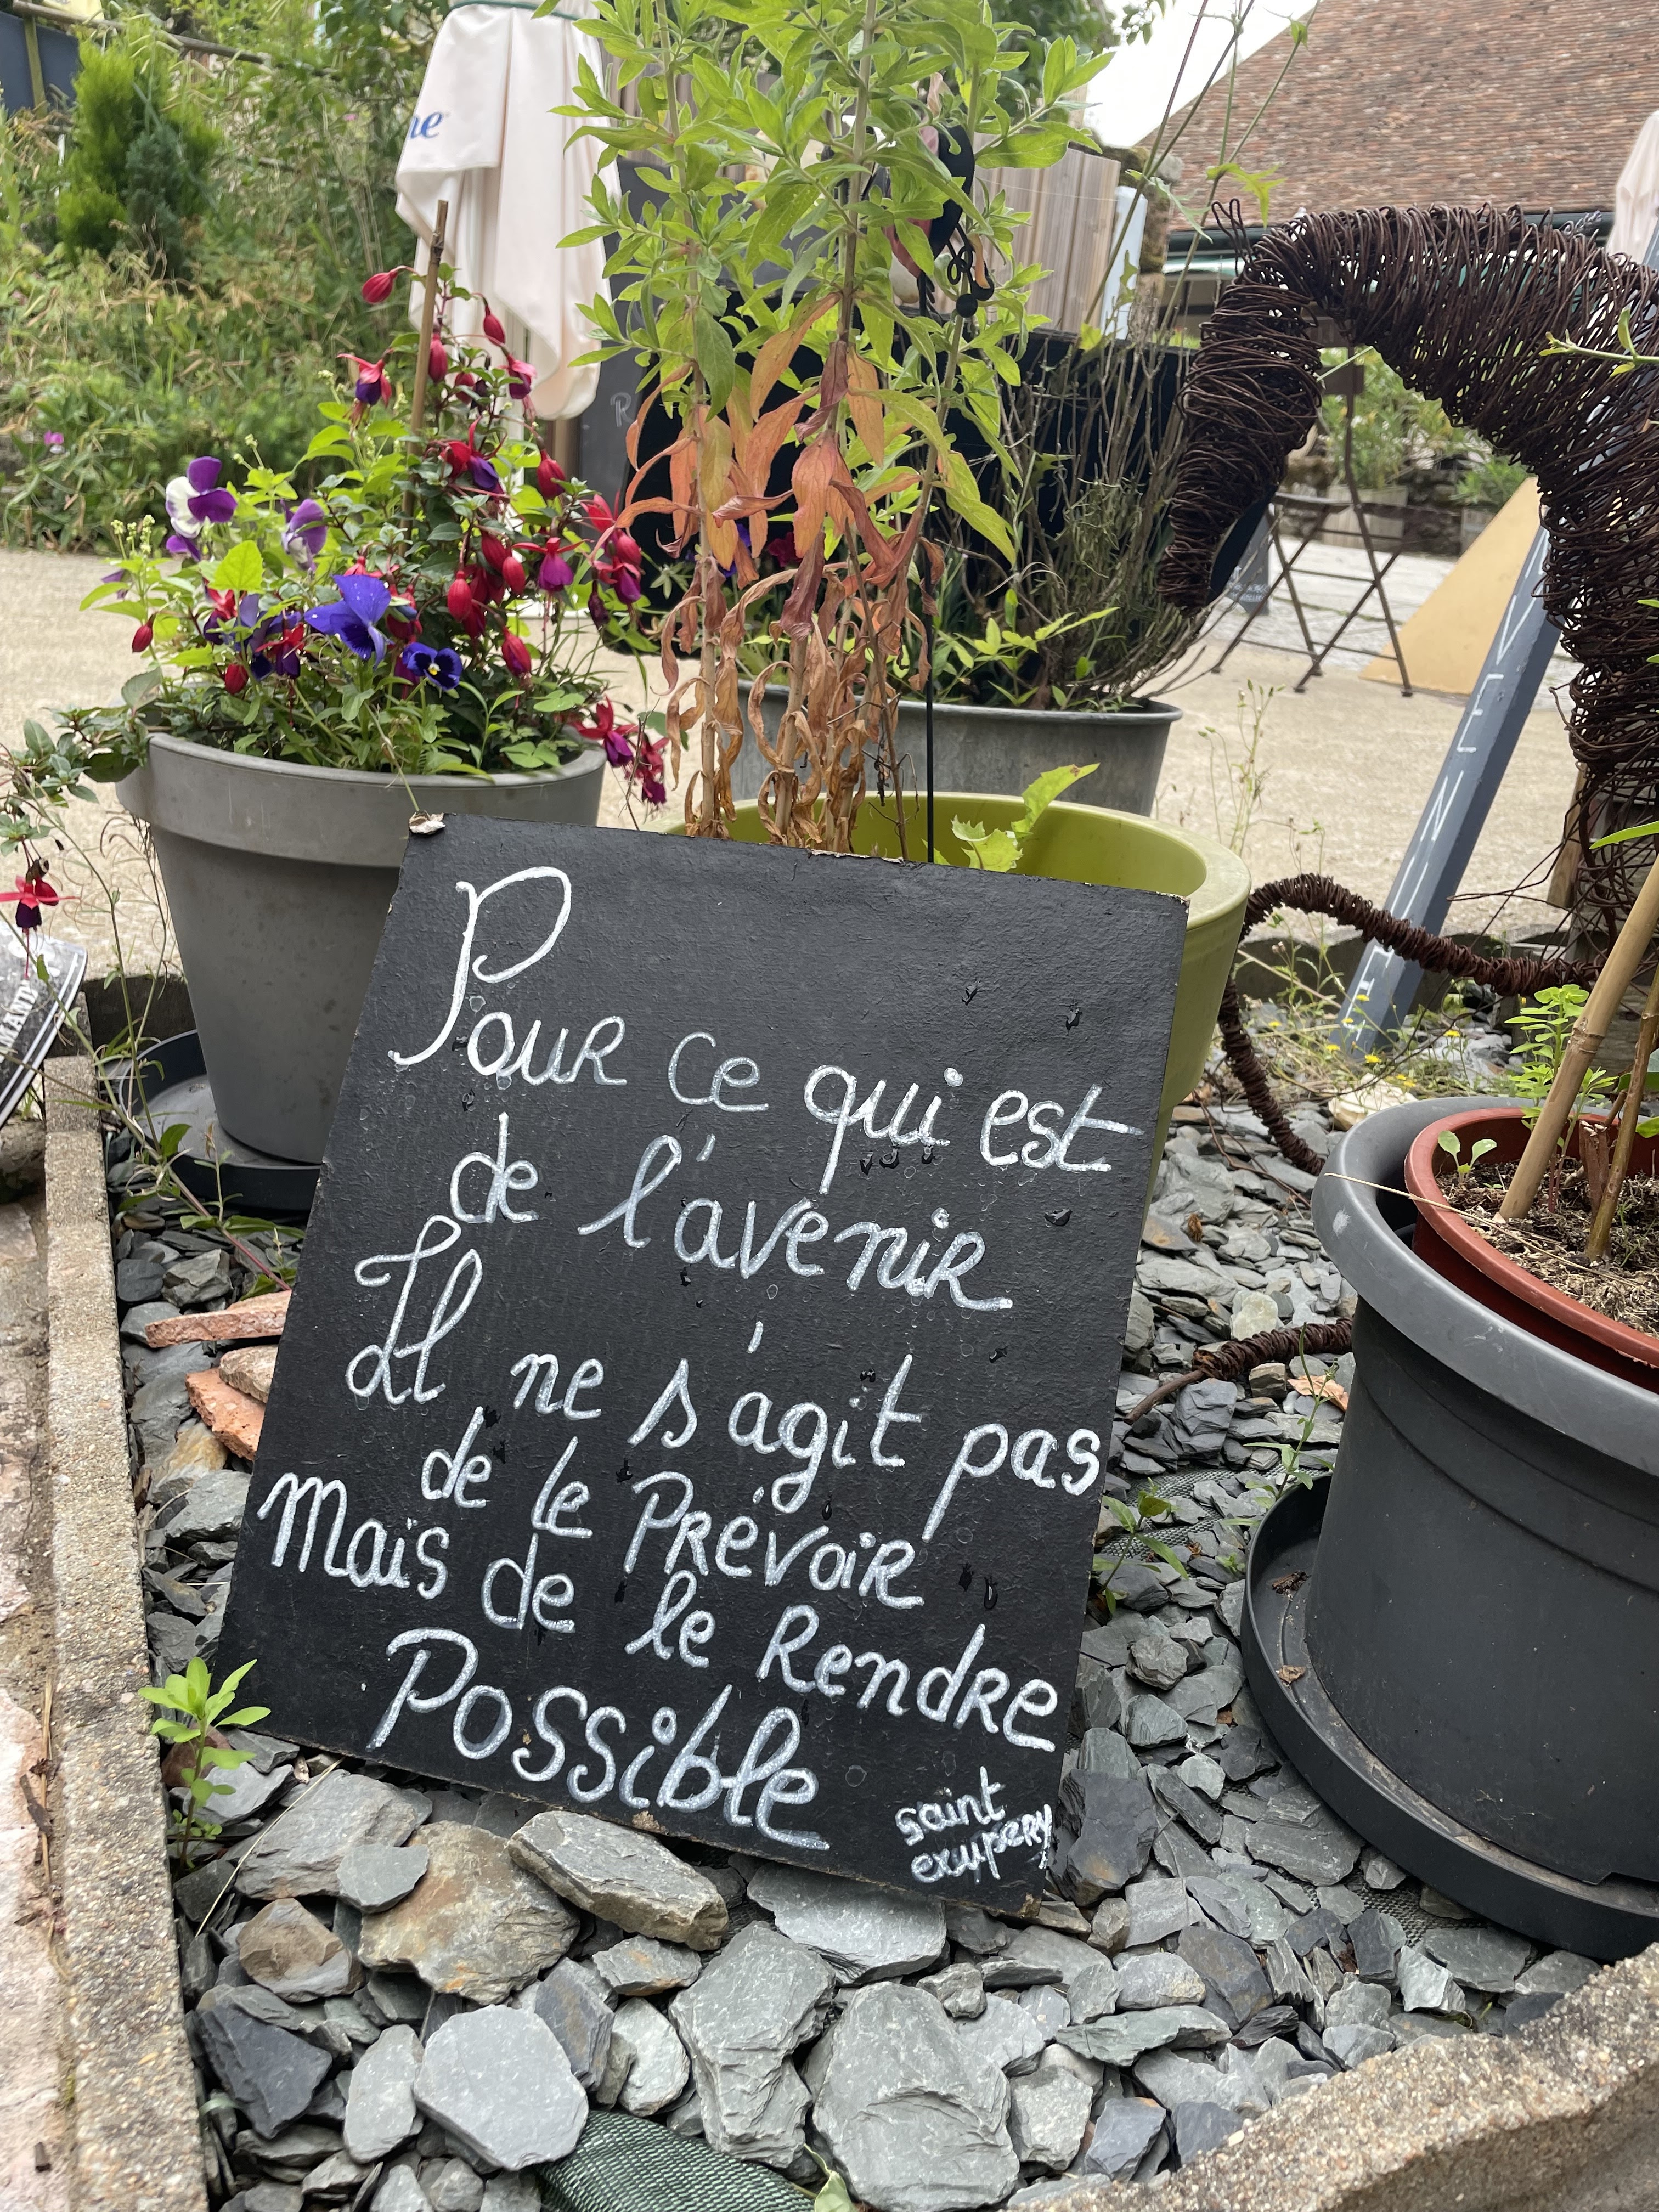 Pour ce qui est
de l'avenir
Il ne s'agit pas
de le Prévoir
Mais de le Rendre
Possible
saint
exupery